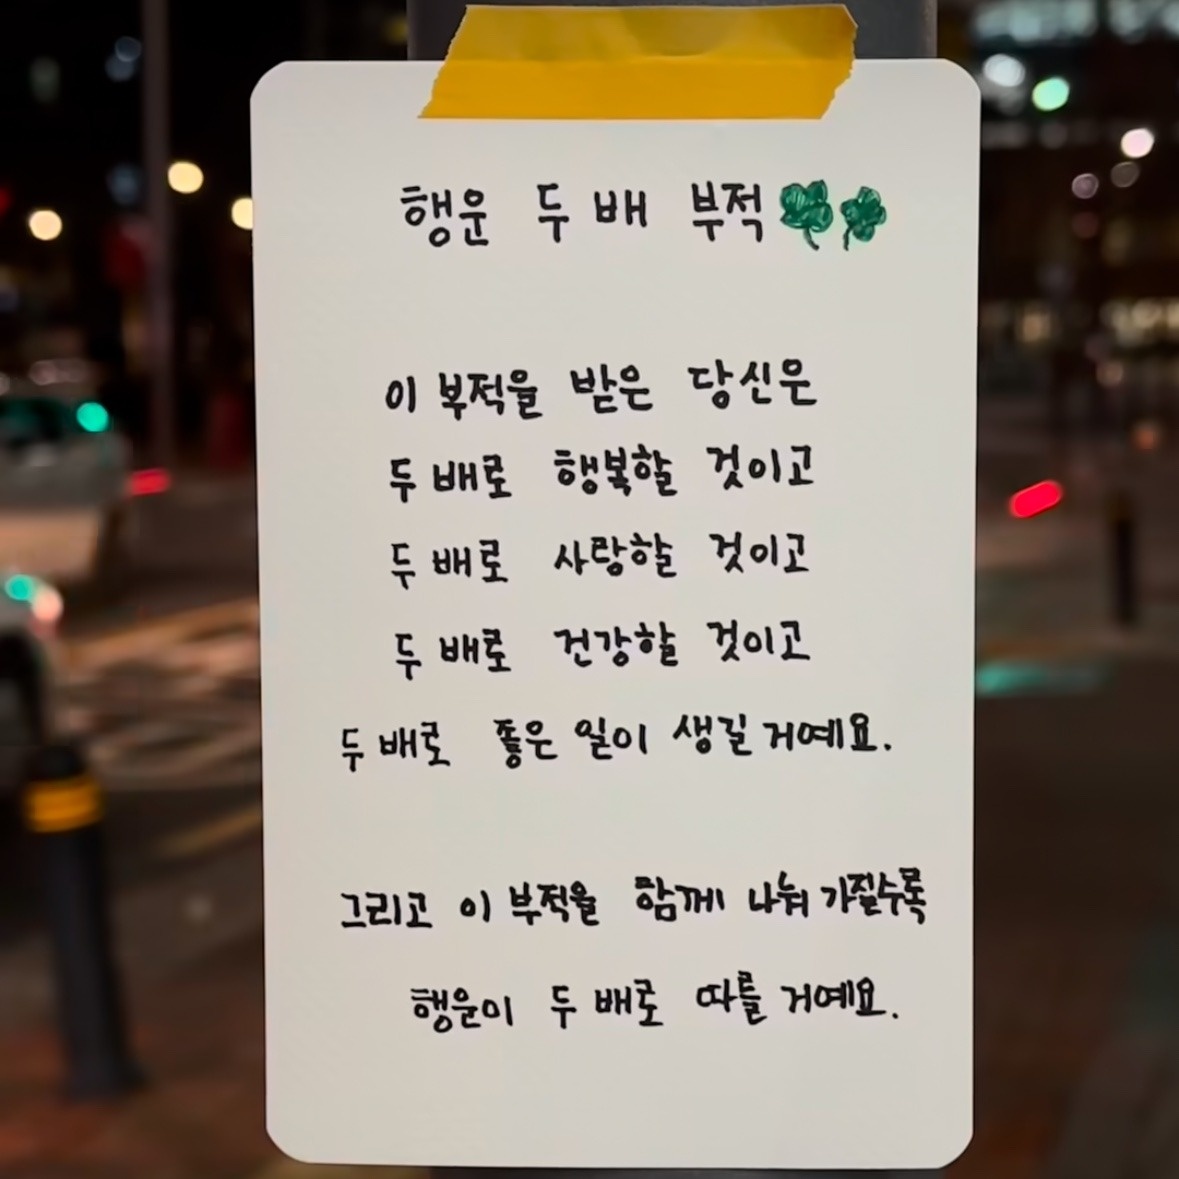 행운 두 배 부적
이 부적을 받은 당신은
두 배로 행복할 것이고
두 배로 사랑할 것이고
두 배로 건강할 것이고
두 배로 좋은 일이 생길 거예요.
그리고 이 부적을 함께 나눠 가질수록
행운이 두 배로 따를 거예요.